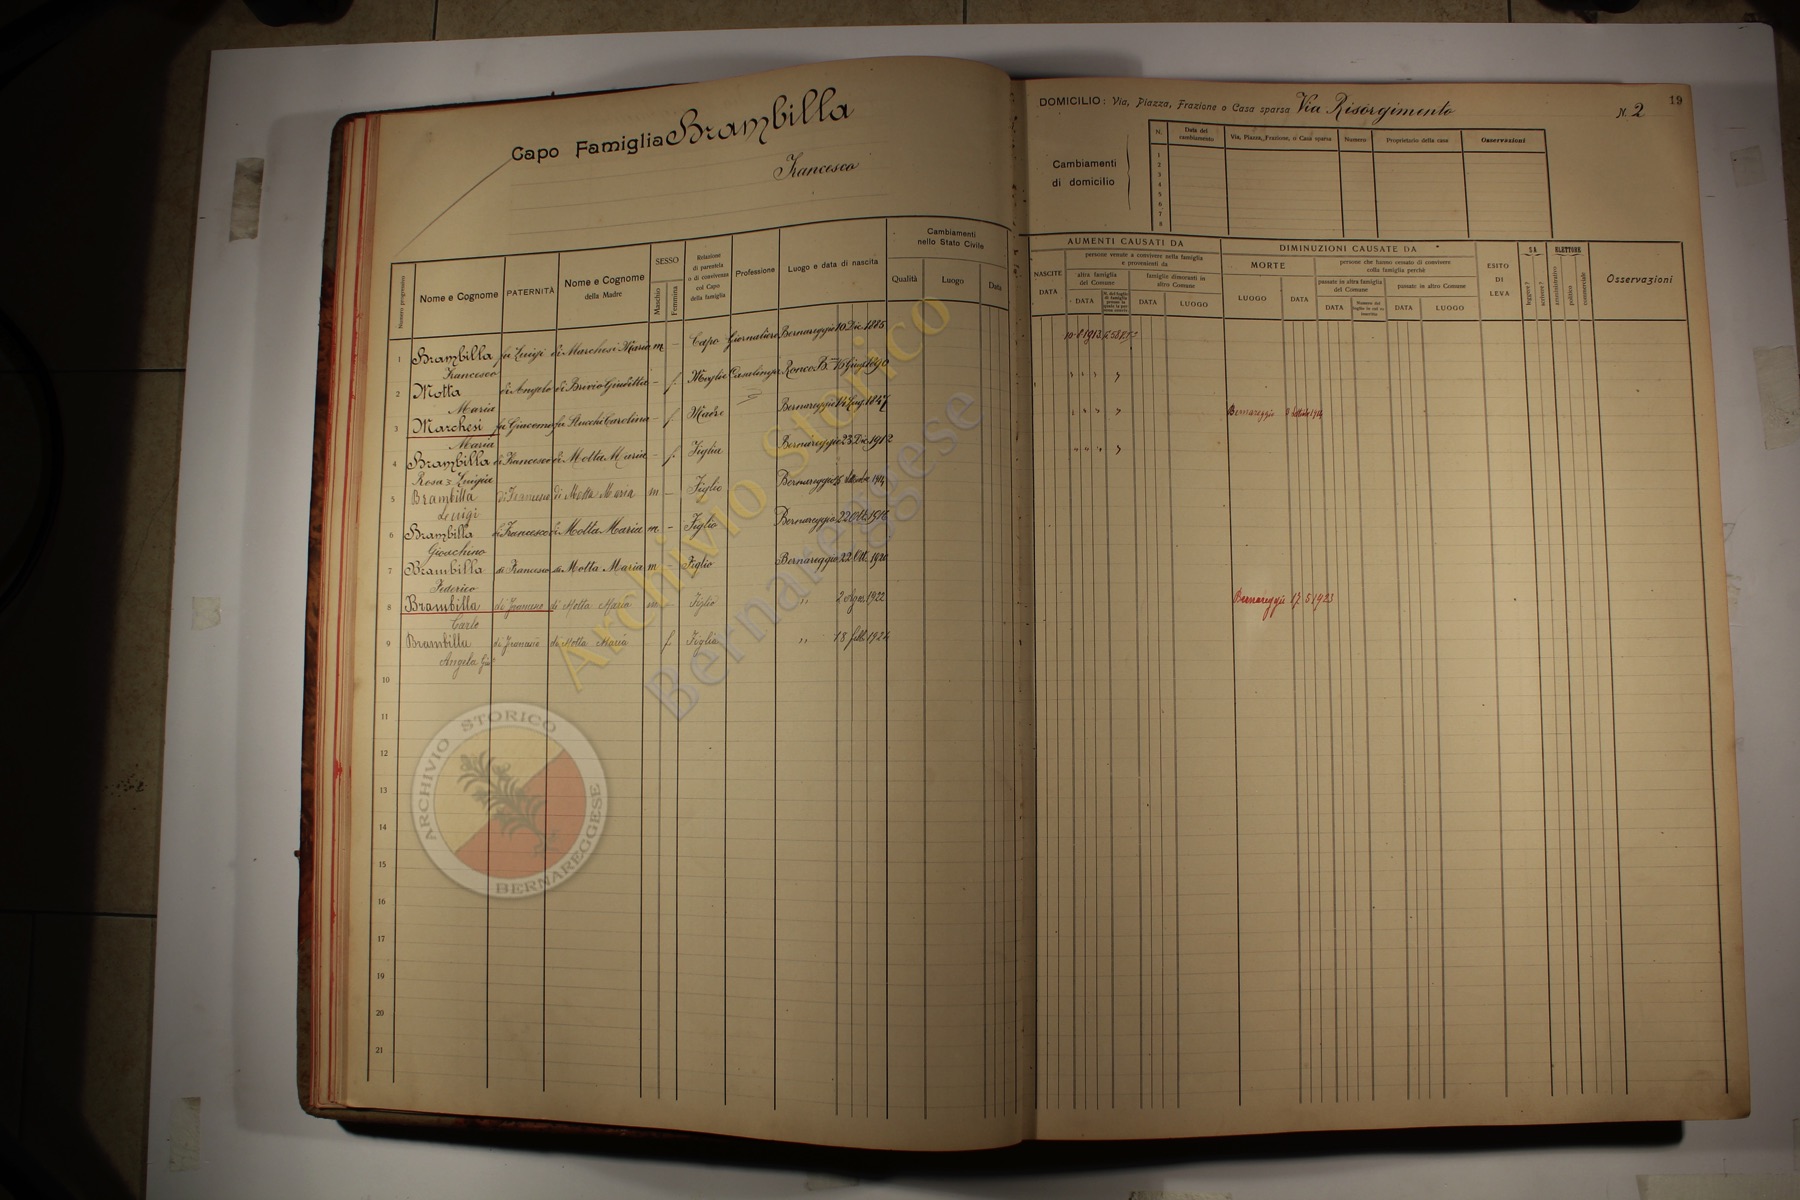 Capo Famiglia Brambilla
Francesco
Numero progressivo
Nome e Cognome
PATERNITÀ
Nome e Cognome
della Madre
SESSO
Maschio
Femmina
Relazione
di parentela
o di convivenza
col Capo
della famiglia
Professione
Luogo e data di nascita
Cambiamenti
nello Stato Civile
Qualità
Luogo
Data
1 Brambilla fu Luigi di Marchesi Maria m – Capo Giornaliero Bernareggio 10 Dic. 1885
Francesco
2 Motta di Angelo di Brevio Giuditta – f. Moglie Casalinga Ronco B. 16 Giug. 1890
Maria
3 Marchesi fu Giacomo fu Stucchi Carolina – f. Madre Bernareggio 14 Lug. 1847
Maria
4 Brambilla di Francesco di Motta Maria – f. Figlia Bernareggio 23 Dic. 1912
Rosa Luigia
5 Brambilla di Francesco di Motta Maria m – Figlio Bernareggio 1914
Luigi
6 Brambilla di Francesco di Motta Maria m – Figlio Bernareggio 22 Ott. 1916
Gioachino
7 Brambilla di Francesco di Motta Maria m – Figlio Bernareggio 22 Ott. 1920
Federico
8 Brambilla di Francesco di Motta Maria m – Figlio " 2 Agos. 1922
Carlo
9 Brambilla di di Motta Maria f. Figlia " 18 febb. 1924
Angela
10
11
12
13
14
15
16
17
18
19
20
21
DOMICILIO: Via, Piazza, Frazione o Casa sparsa Via Risorgimento
N. 2
19
Cambiamenti
di domicilio
N.
Data del
cambiamento
Via, Piazza, Frazione, o Casa sparsa
Numero
Proprietario della casa
Osservazioni
1
2
3
4
5
6
7
8
AUMENTI CAUSATI DA
NASCITE
DATA
persone venute a convivere nella famiglia
e provenienti da
altra famiglia
del Comune
DATA
famiglie dimoranti in
altro Comune
DATA
LUOGO
DIMINUZIONI CAUSATE DA
MORTE
LUOGO
DATA
persone che hanno cessato di convivere
colla famiglia perchè
passate in altra famiglia
del Comune
DATA
Numero del
foglio in cui si
inscritto
passate in altro Comune
DATA
LUOGO
ESITO
DI
LEVA
SA
leggere?
scrivere?
ELETTORE
amministrativo
politico
commerciale
Osservazioni
Bernareggio 1914
Bernareggio 17.5.1923
Archivio Storico
Bernareggese
ARCHIVIO STORICO
BERNAREGGESE